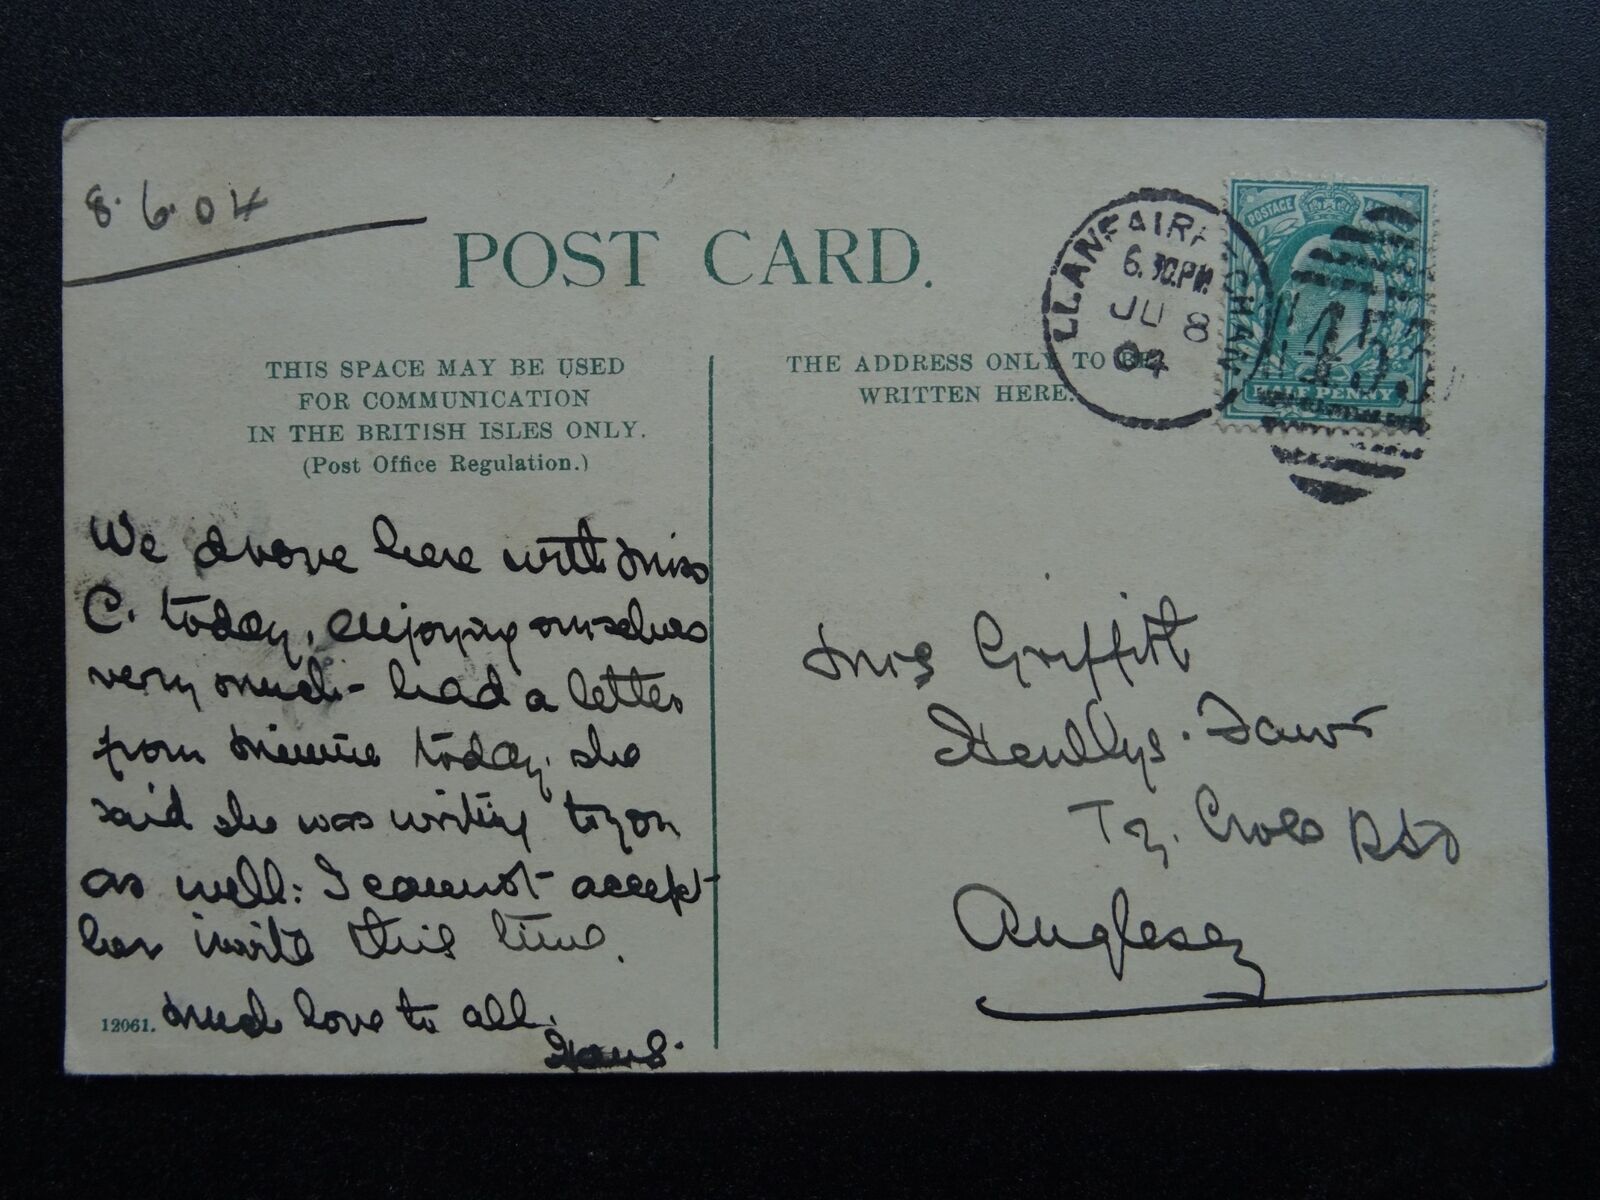 8.6.04
POST CARD.
THIS SPACE MAY BE USED
FOR COMMUNICATION
IN THE BRITISH ISLES ONLY.
(Post Office Regulation.)
THE ADDRESS ONLY TO BE
WRITTEN HERE.
LLANFAIRFECHAN
6.30PM
JU 8
04
POSTAGE
HALFPENNY
We drove here with Miss
C. today, enjoying ourselves
very much - had a letter
from Minnie today. she
said she was writing to you
as well: I cannot accept
her invite this time.
Much love to all.
12061.
Mrs Griffith
Henllys Fawr
Ty Croes RSO
Anglesey